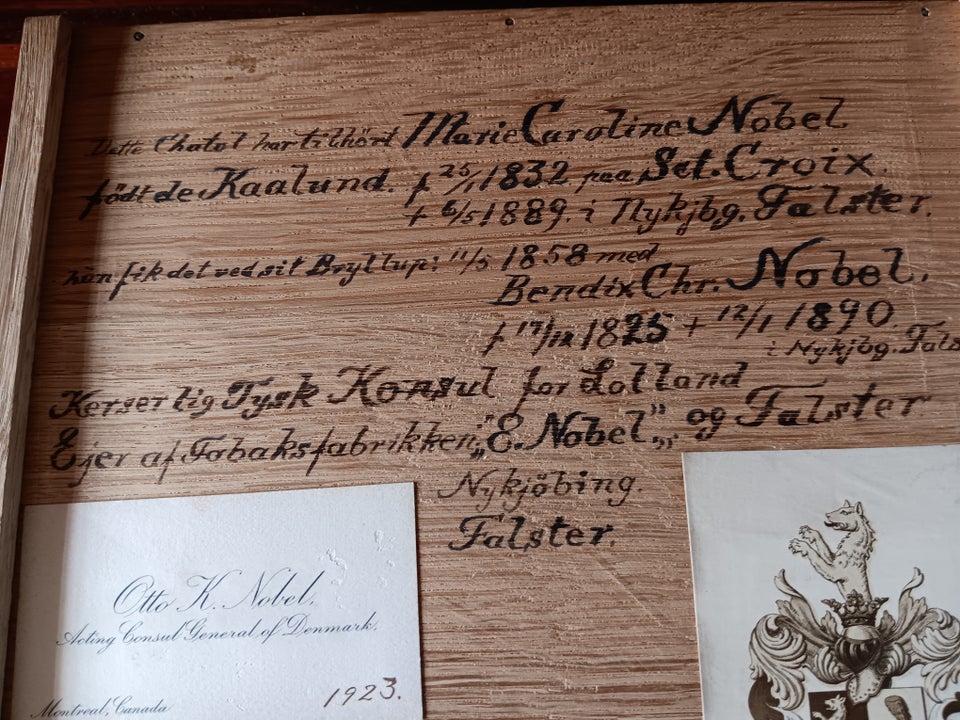 Dette Chatol har tilhört Marie Caroline Nobel
född de Kaalund. f 25/1 1832 paa Sct. Croix.
+ 6/5 1889. i Nykjbg. Falster.
hun fik det ved sit Bryllup: 11/5 1858 med
Bendix Chr. Nobel.
f 17/12 1825 + 12/1 1890.
i Nykjbg. Fals
Kerserlig Tysk Konsul for Lolland
og Falster
Ejer af Tabaksfabrikken „E. Nobel”
Nykjöbing.
Falster.
Otto K. Nobel.
Acting Consul General of Denmark.
Montreal, Canada
1923.